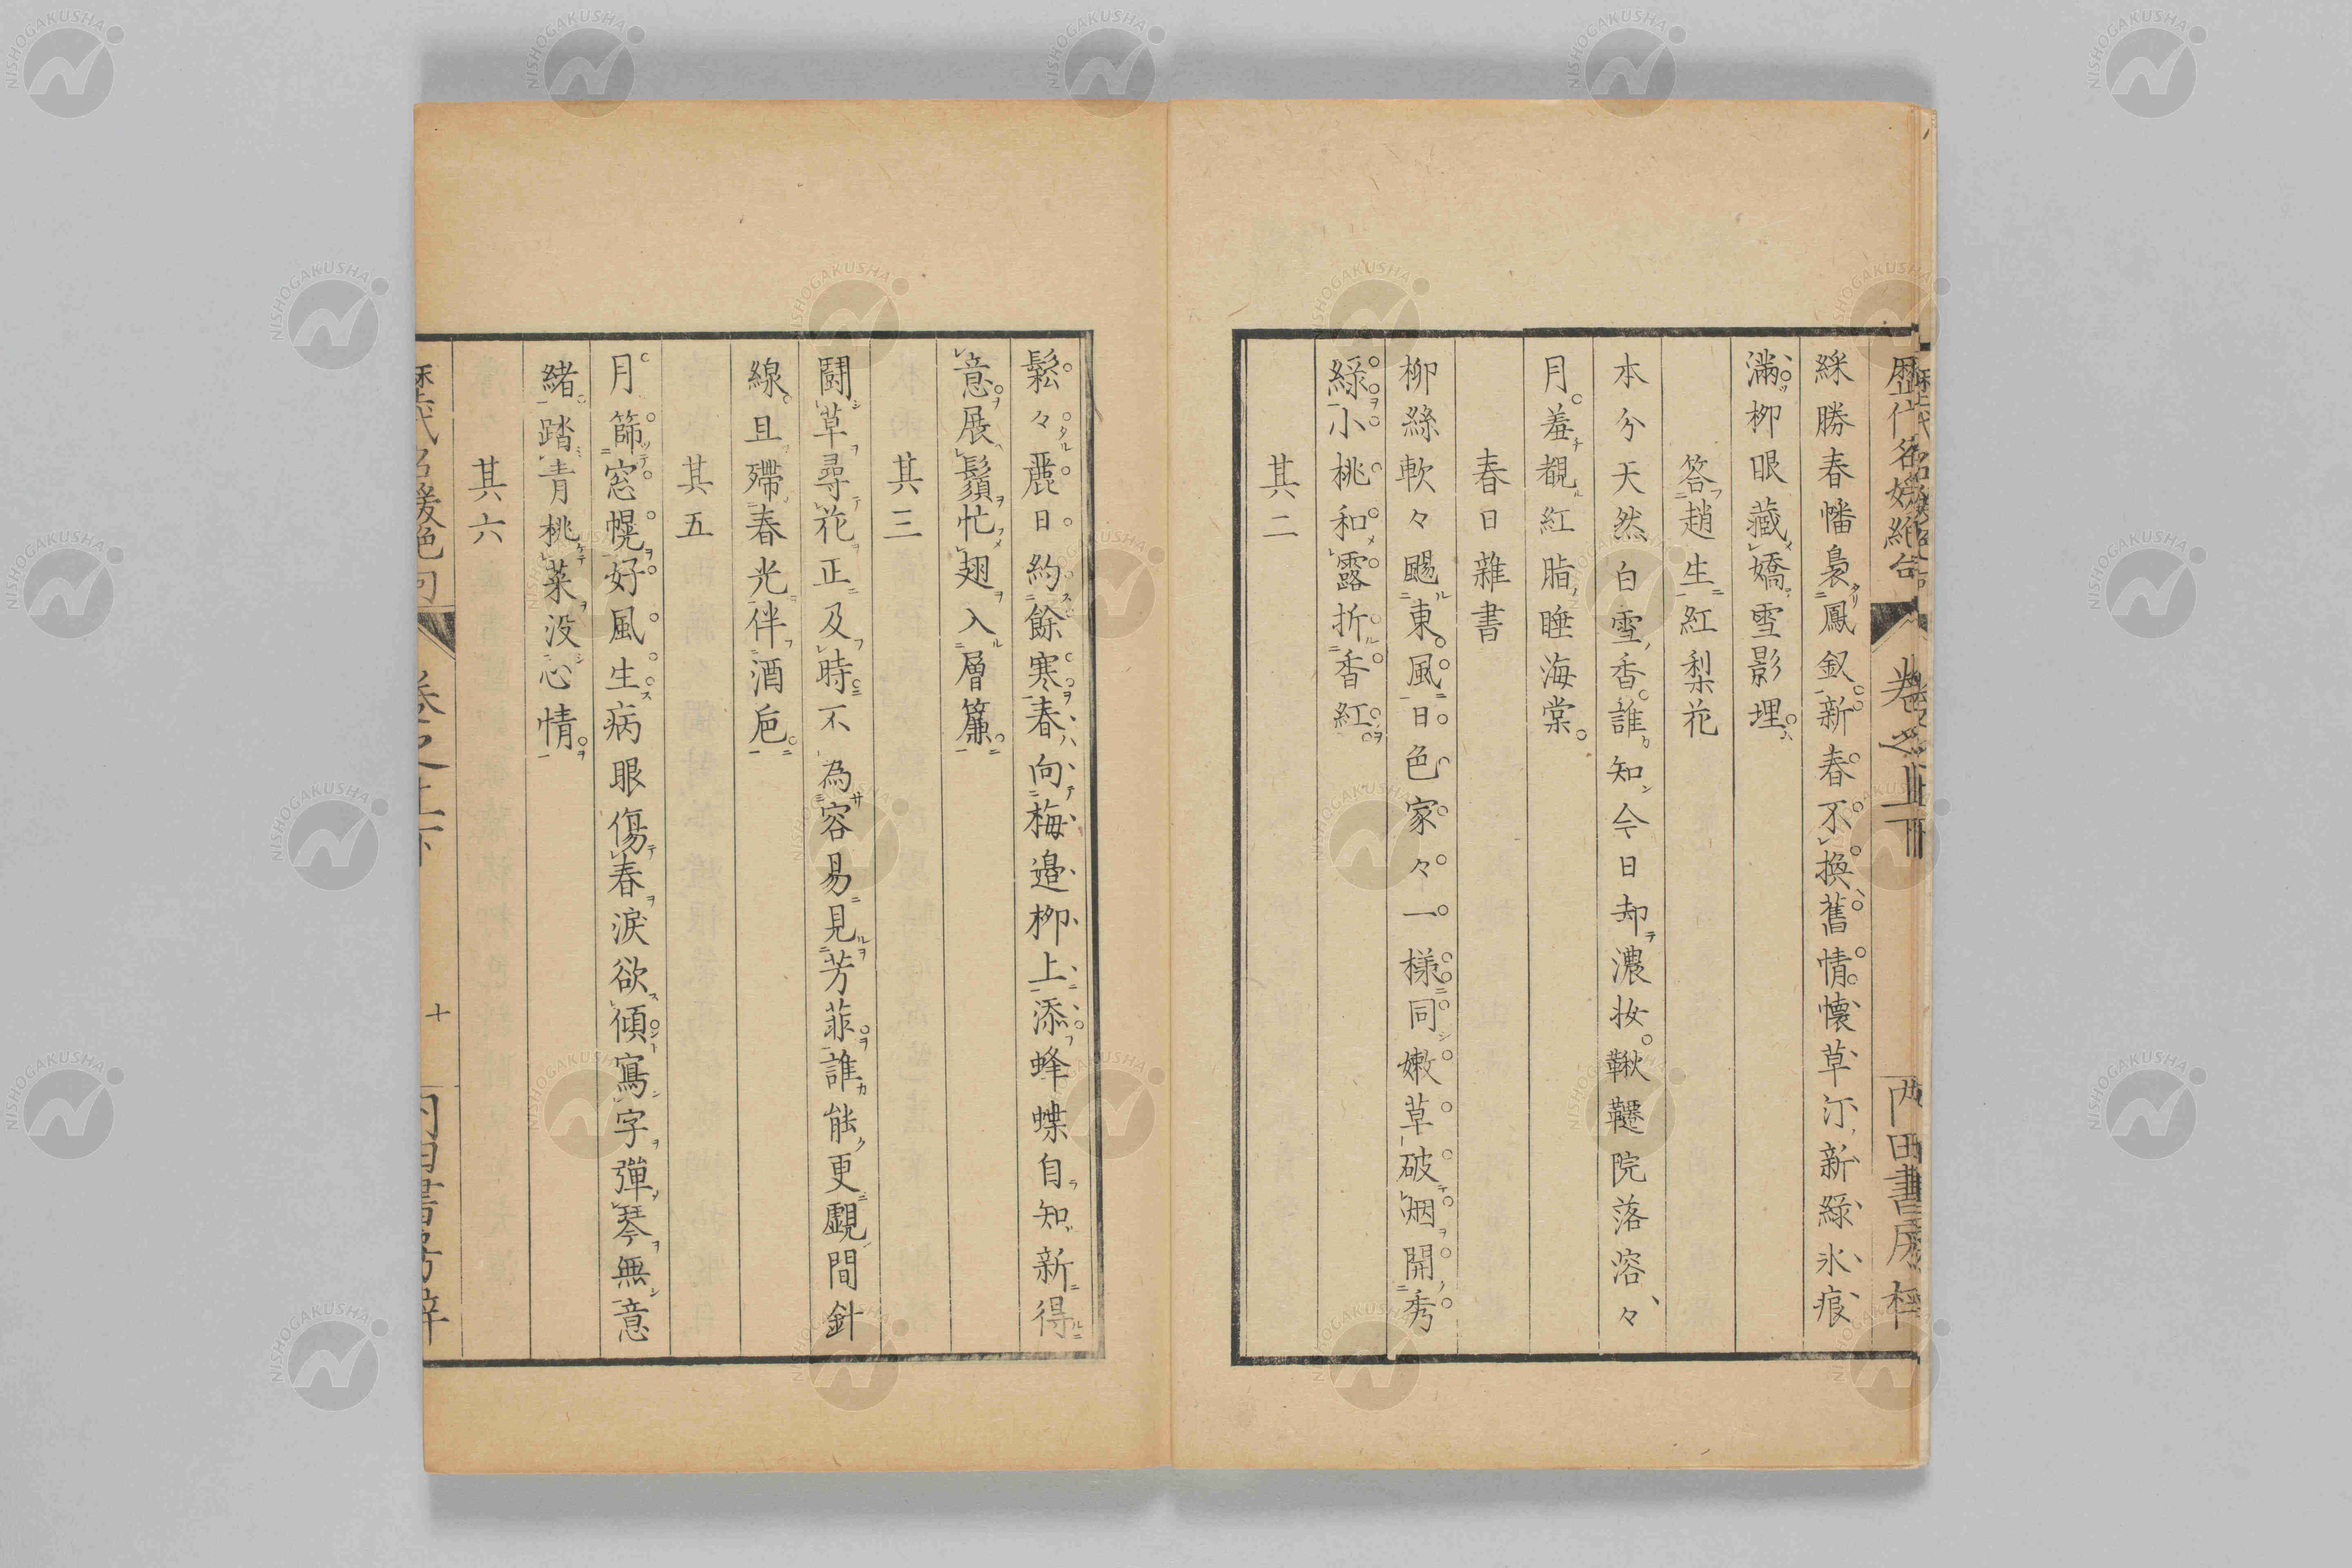 綵勝春幡裊鳳釵新春不換舊情懷草汀新綠氷痕
滿柳眼藏嬌雪影埋
答趙生紅梨花
本分天然白雪香誰知今日却濃妝鞦韆院落溶々
月羞覩紅脂睡海棠
春日雜書
柳絲軟々颺東風日色家々一樣同嫩草破烟開秀
綠小桃和露折香紅
其二
鬆々麗日約餘寒春向梅邉柳上添蜂蝶自知新得
意展鬚忙翅入層簾
其三
鬪草尋花正及時不為容易見芳菲誰能更覷間針
線且殢春光伴酒巵
其五
月篩窓幌好風生病眼傷春淚欲傾寫字彈琴無意
緒踏青桃菜没心情
其六
十
NISHOGAKUSHA